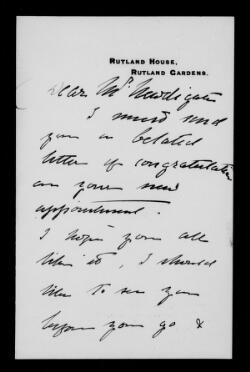 RUTLAND HOUSE,
RUTLAND GARDENS.
Dear Mr. Newdigate
I must send
you a belated
letter of congratulation
on your new
appointment.
I hope you all
like it, I should
like to see you
before you go &